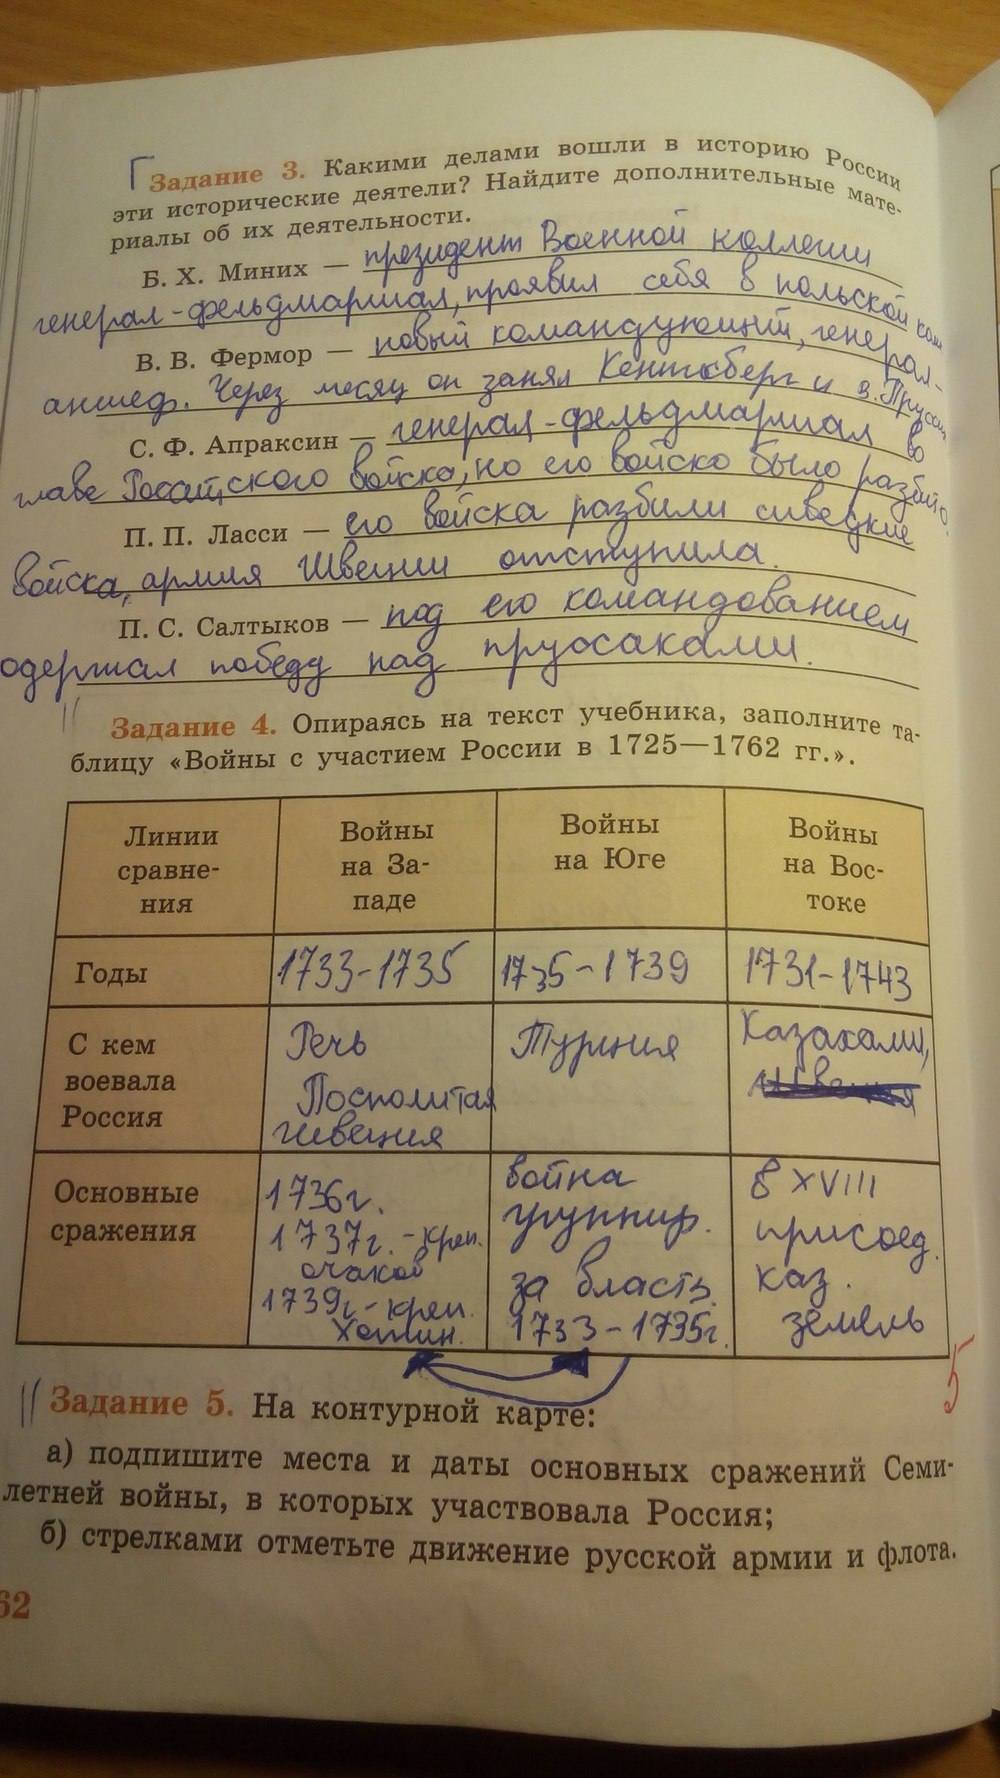 Задание 3. Какими делами вошли в историю России
эти исторические деятели? Найдите дополнительные мате-
риалы об их деятельности.
Б. Х. Миних — президент Военной коллегии
генерал-фельдмаршал, проявил себя в польской кам
В. В. Фермор — новый командующий, генерал-
аншеф. Через месяц он занял и в. Прусси
С. Ф. Апраксин — генерал-фельдмаршал во
главе Российского войска, но его войско было разбито.
П. П. Ласси — его войска разбили шведские
войска, армия Швеции отступила.
П. С. Салтыков — под его командованием
одержал победу над пруссаками.
Задание 4. Опираясь на текст учебника, заполните та-
блицу «Войны с участием России в 1725—1762 гг.».
Линии
сравне-
ния
Войны
на За-
паде
Войны
на Юге
Войны
на Вос-
токе
Годы
1733-1735
1735-1739
1731-1743
С кем
воевала
Россия
Речь
Посполитая
Швеция
Турция
Казахами,
Швеция
Основные
сражения
1736г.
1737г. - креп.
очаков
1739г - креп.
Хотин.
война
группир.
за власть
1733-1735г.
в XVIII
присоед.
каз.
земель
5
Задание 5. На контурной карте:
а) подпишите места и даты основных сражений Семи-
летней войны, в которых участвовала Россия;
б) стрелками отметьте движение русской армии и флота.
62